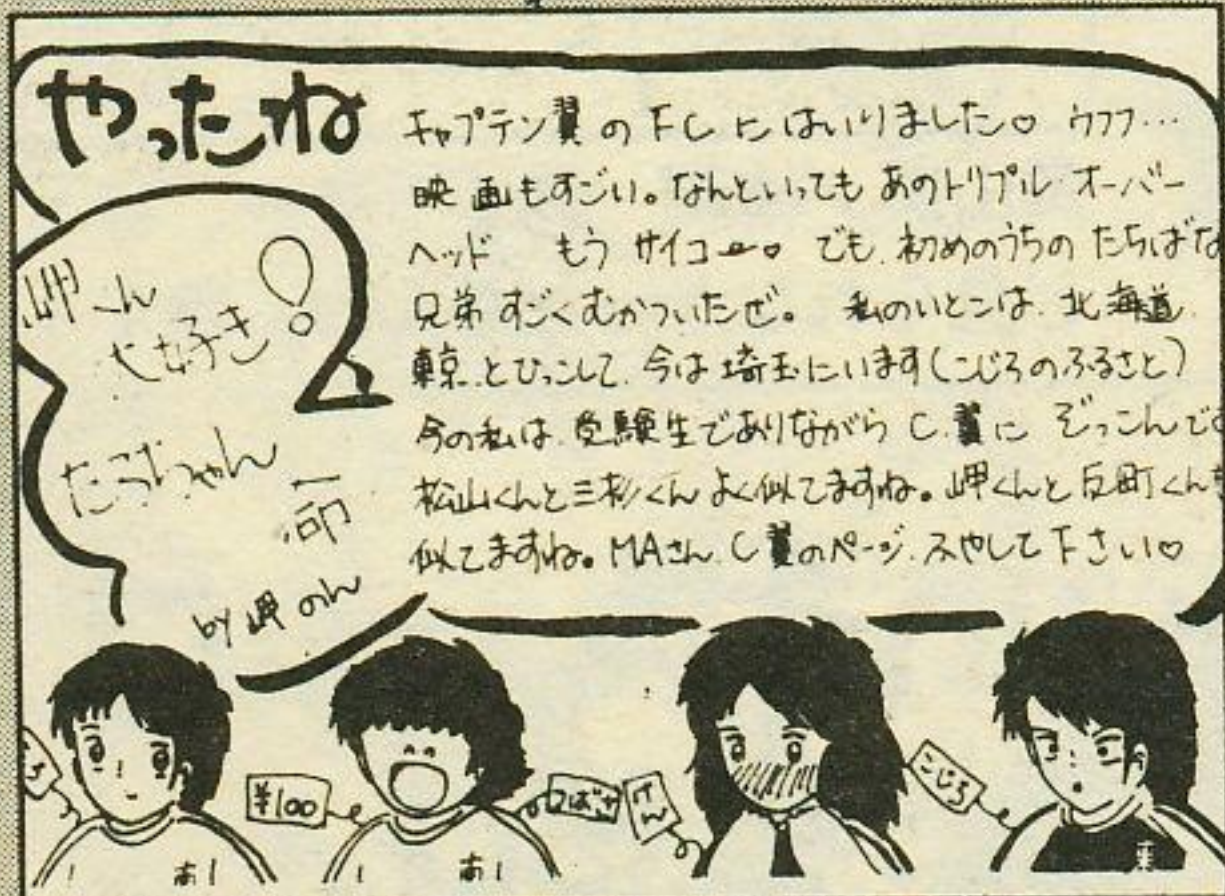 やったね
キャプテン翼のFCにはいりました♡ ウフフ…
映画もすごい。なんといっても あのトリプル・オーバー
ヘッド もう サイコー♡ でも、初めのうちの たちばな
兄弟 すごくむかついたぜ。 私のいとこは、北海道、
東京、とひっこして、今は埼玉にいます(こじろのふるさと)
今の私は、受験生でありながら C.翼に ぞっこんで
松山くんと三杉くん よく似てますね。岬くんと反町くん
似てますね。MAさん、C翼のページ、ふやして下さい♡
岬くん
大好き!
たろうちゃん
命
by 岬 のん
ろ
¥100
つばさ
けん
こじろ
あし
あし
東